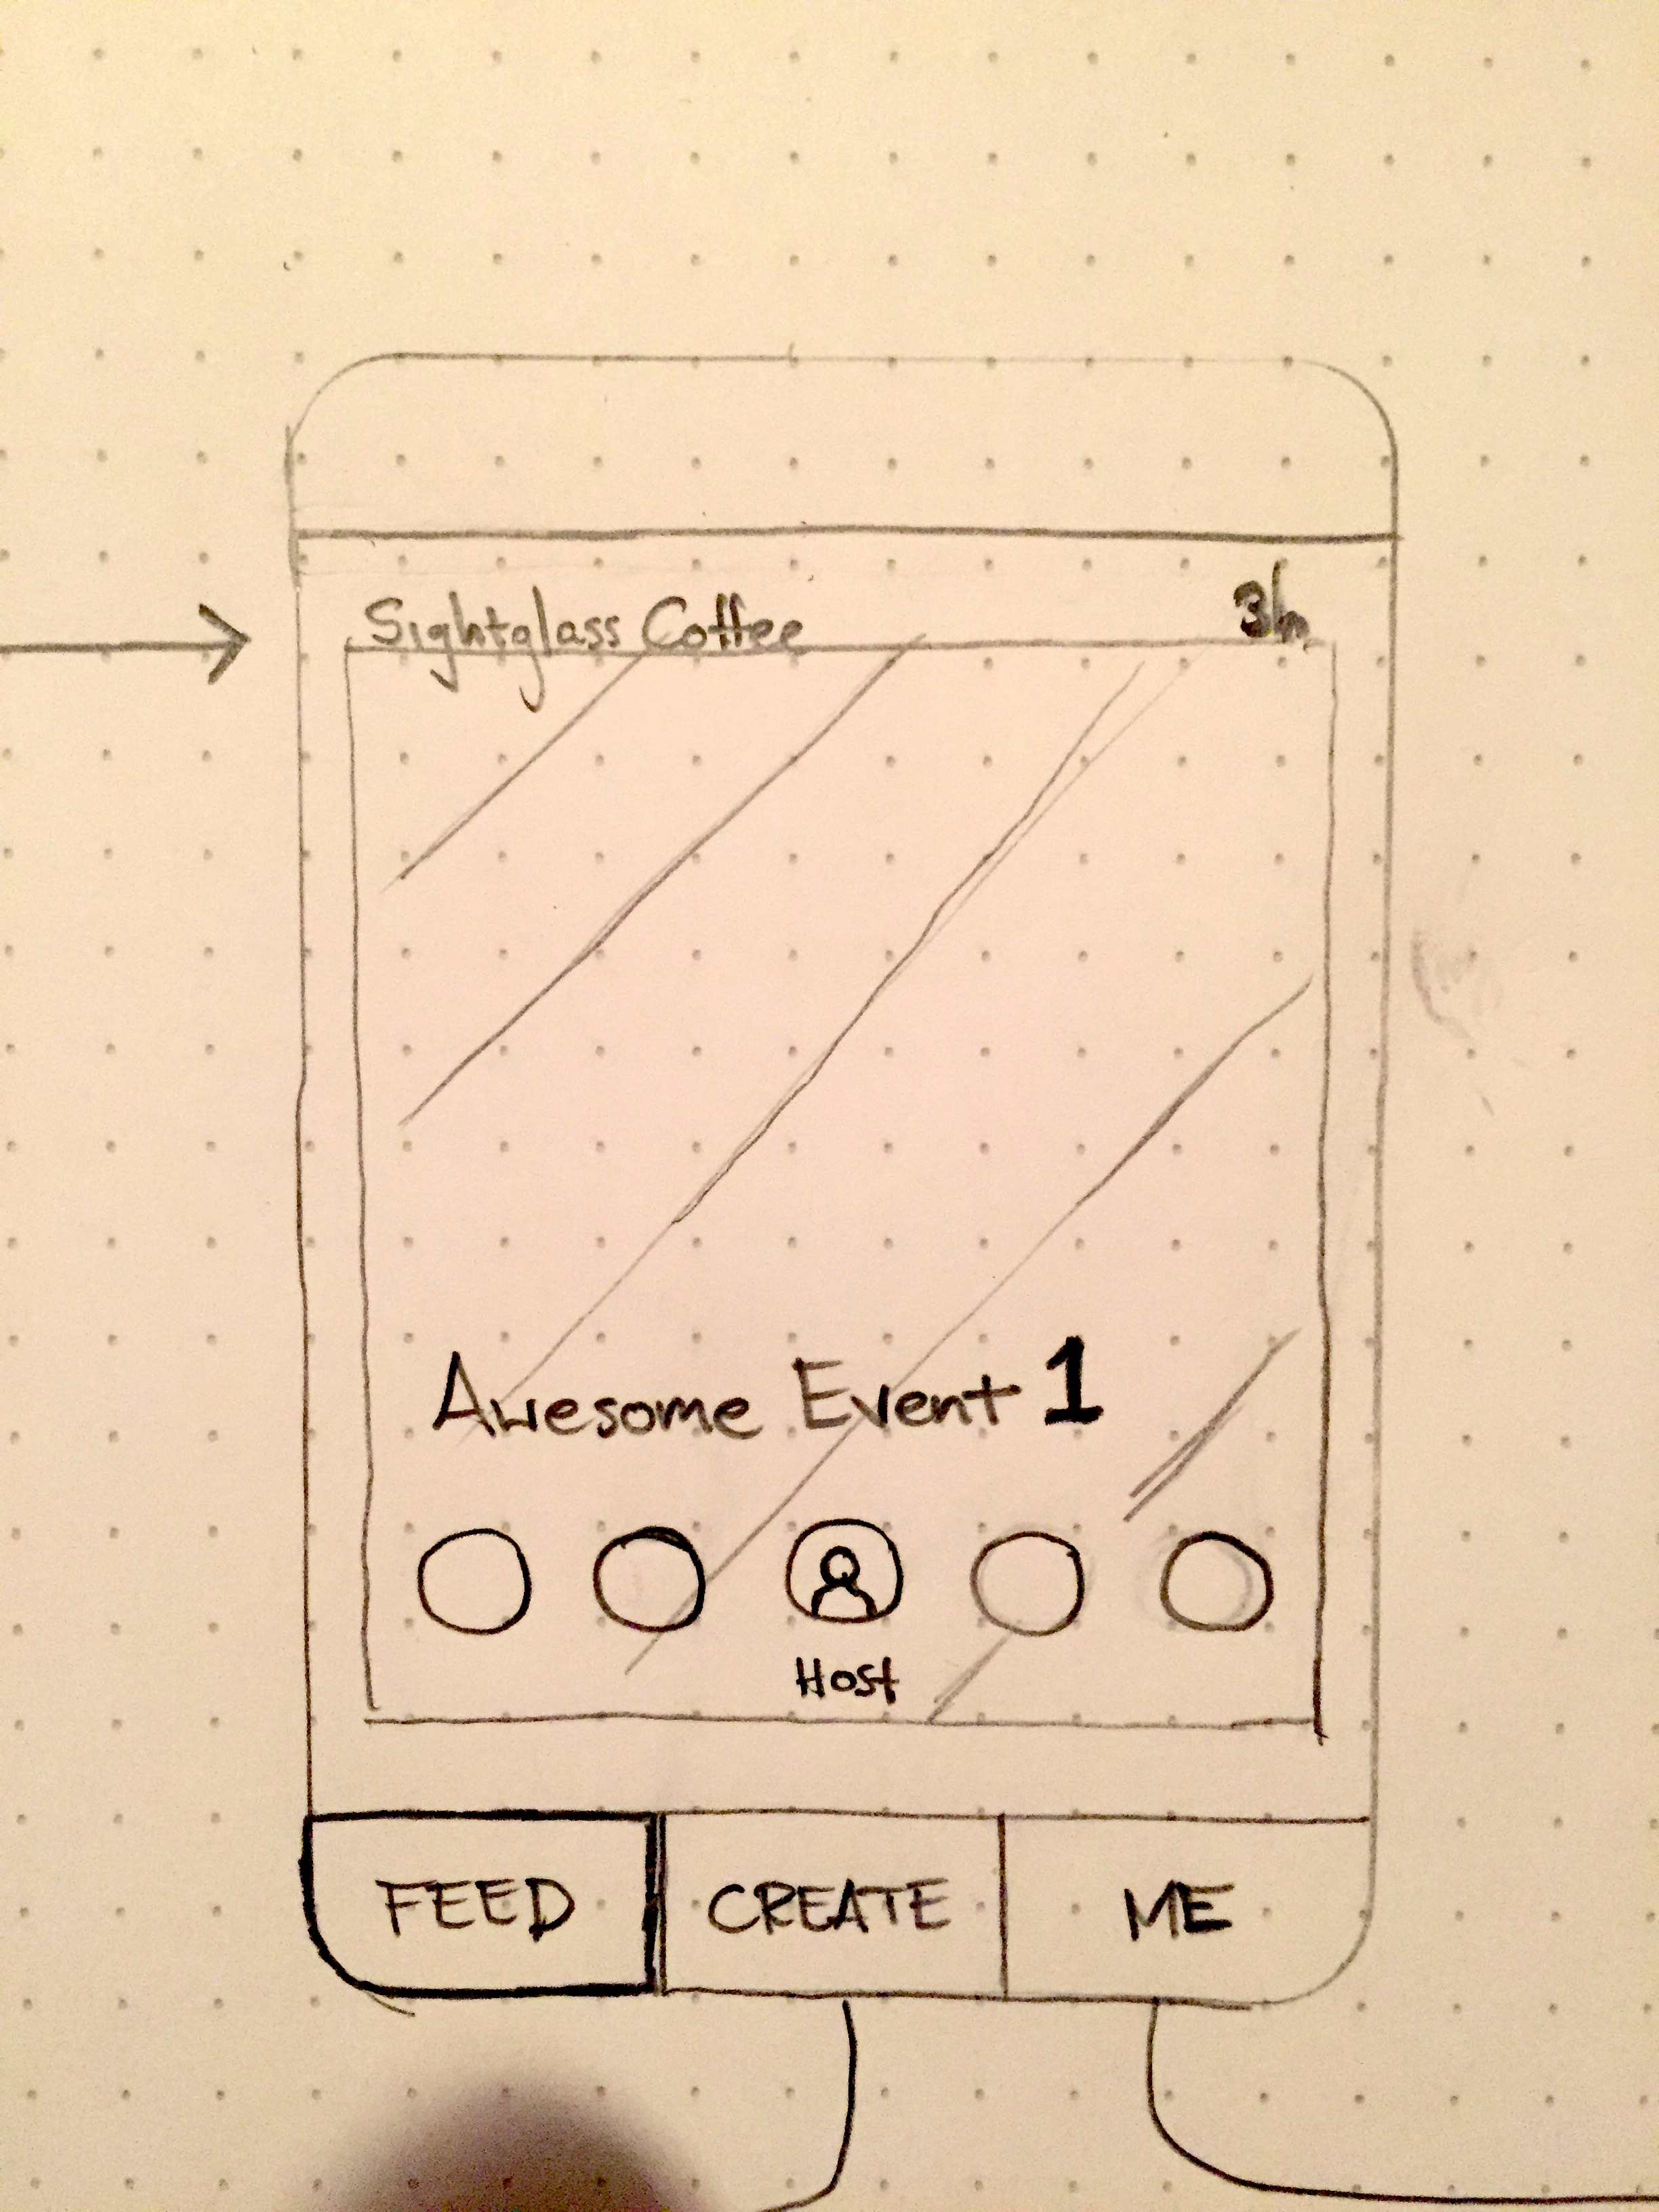 Sightglass Coffee
Awesome Event 1
Host
FEED CREATE ME